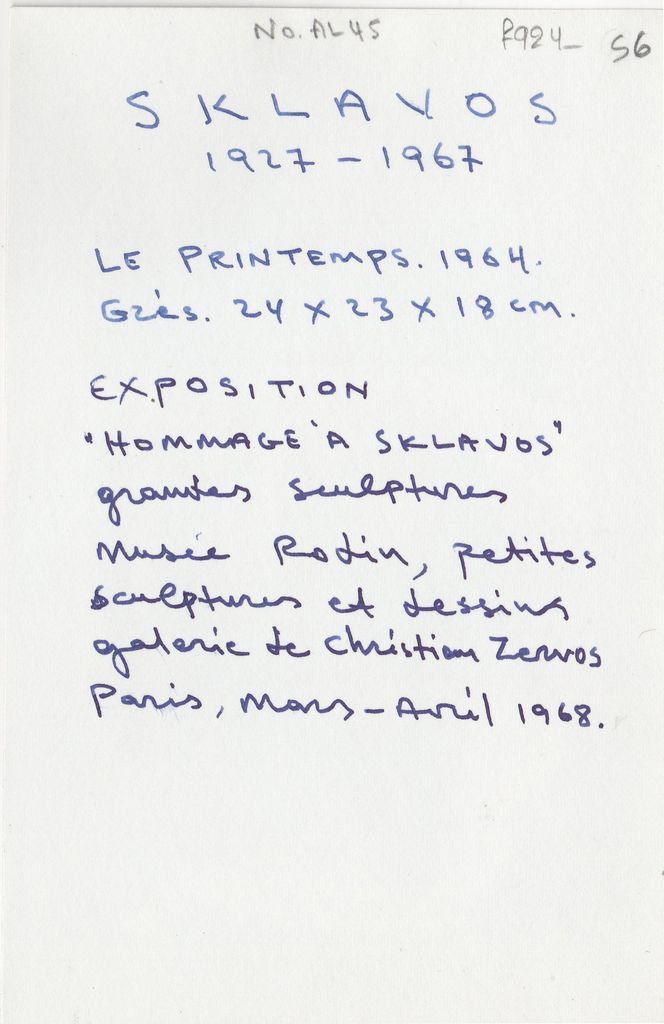 No. AL45 f924_ 56
SKLAVOS
1927 - 1967
LE PRINTEMPS. 1964.
Grès. 24 x 23 x 18 cm.
EXPOSITION
"HOMMAGE À SKLAVOS"
grandes sculptures
Musée Rodin, petites
sculptures et dessins
galerie de Christian Zervos
Paris, Mars - Avril 1968.